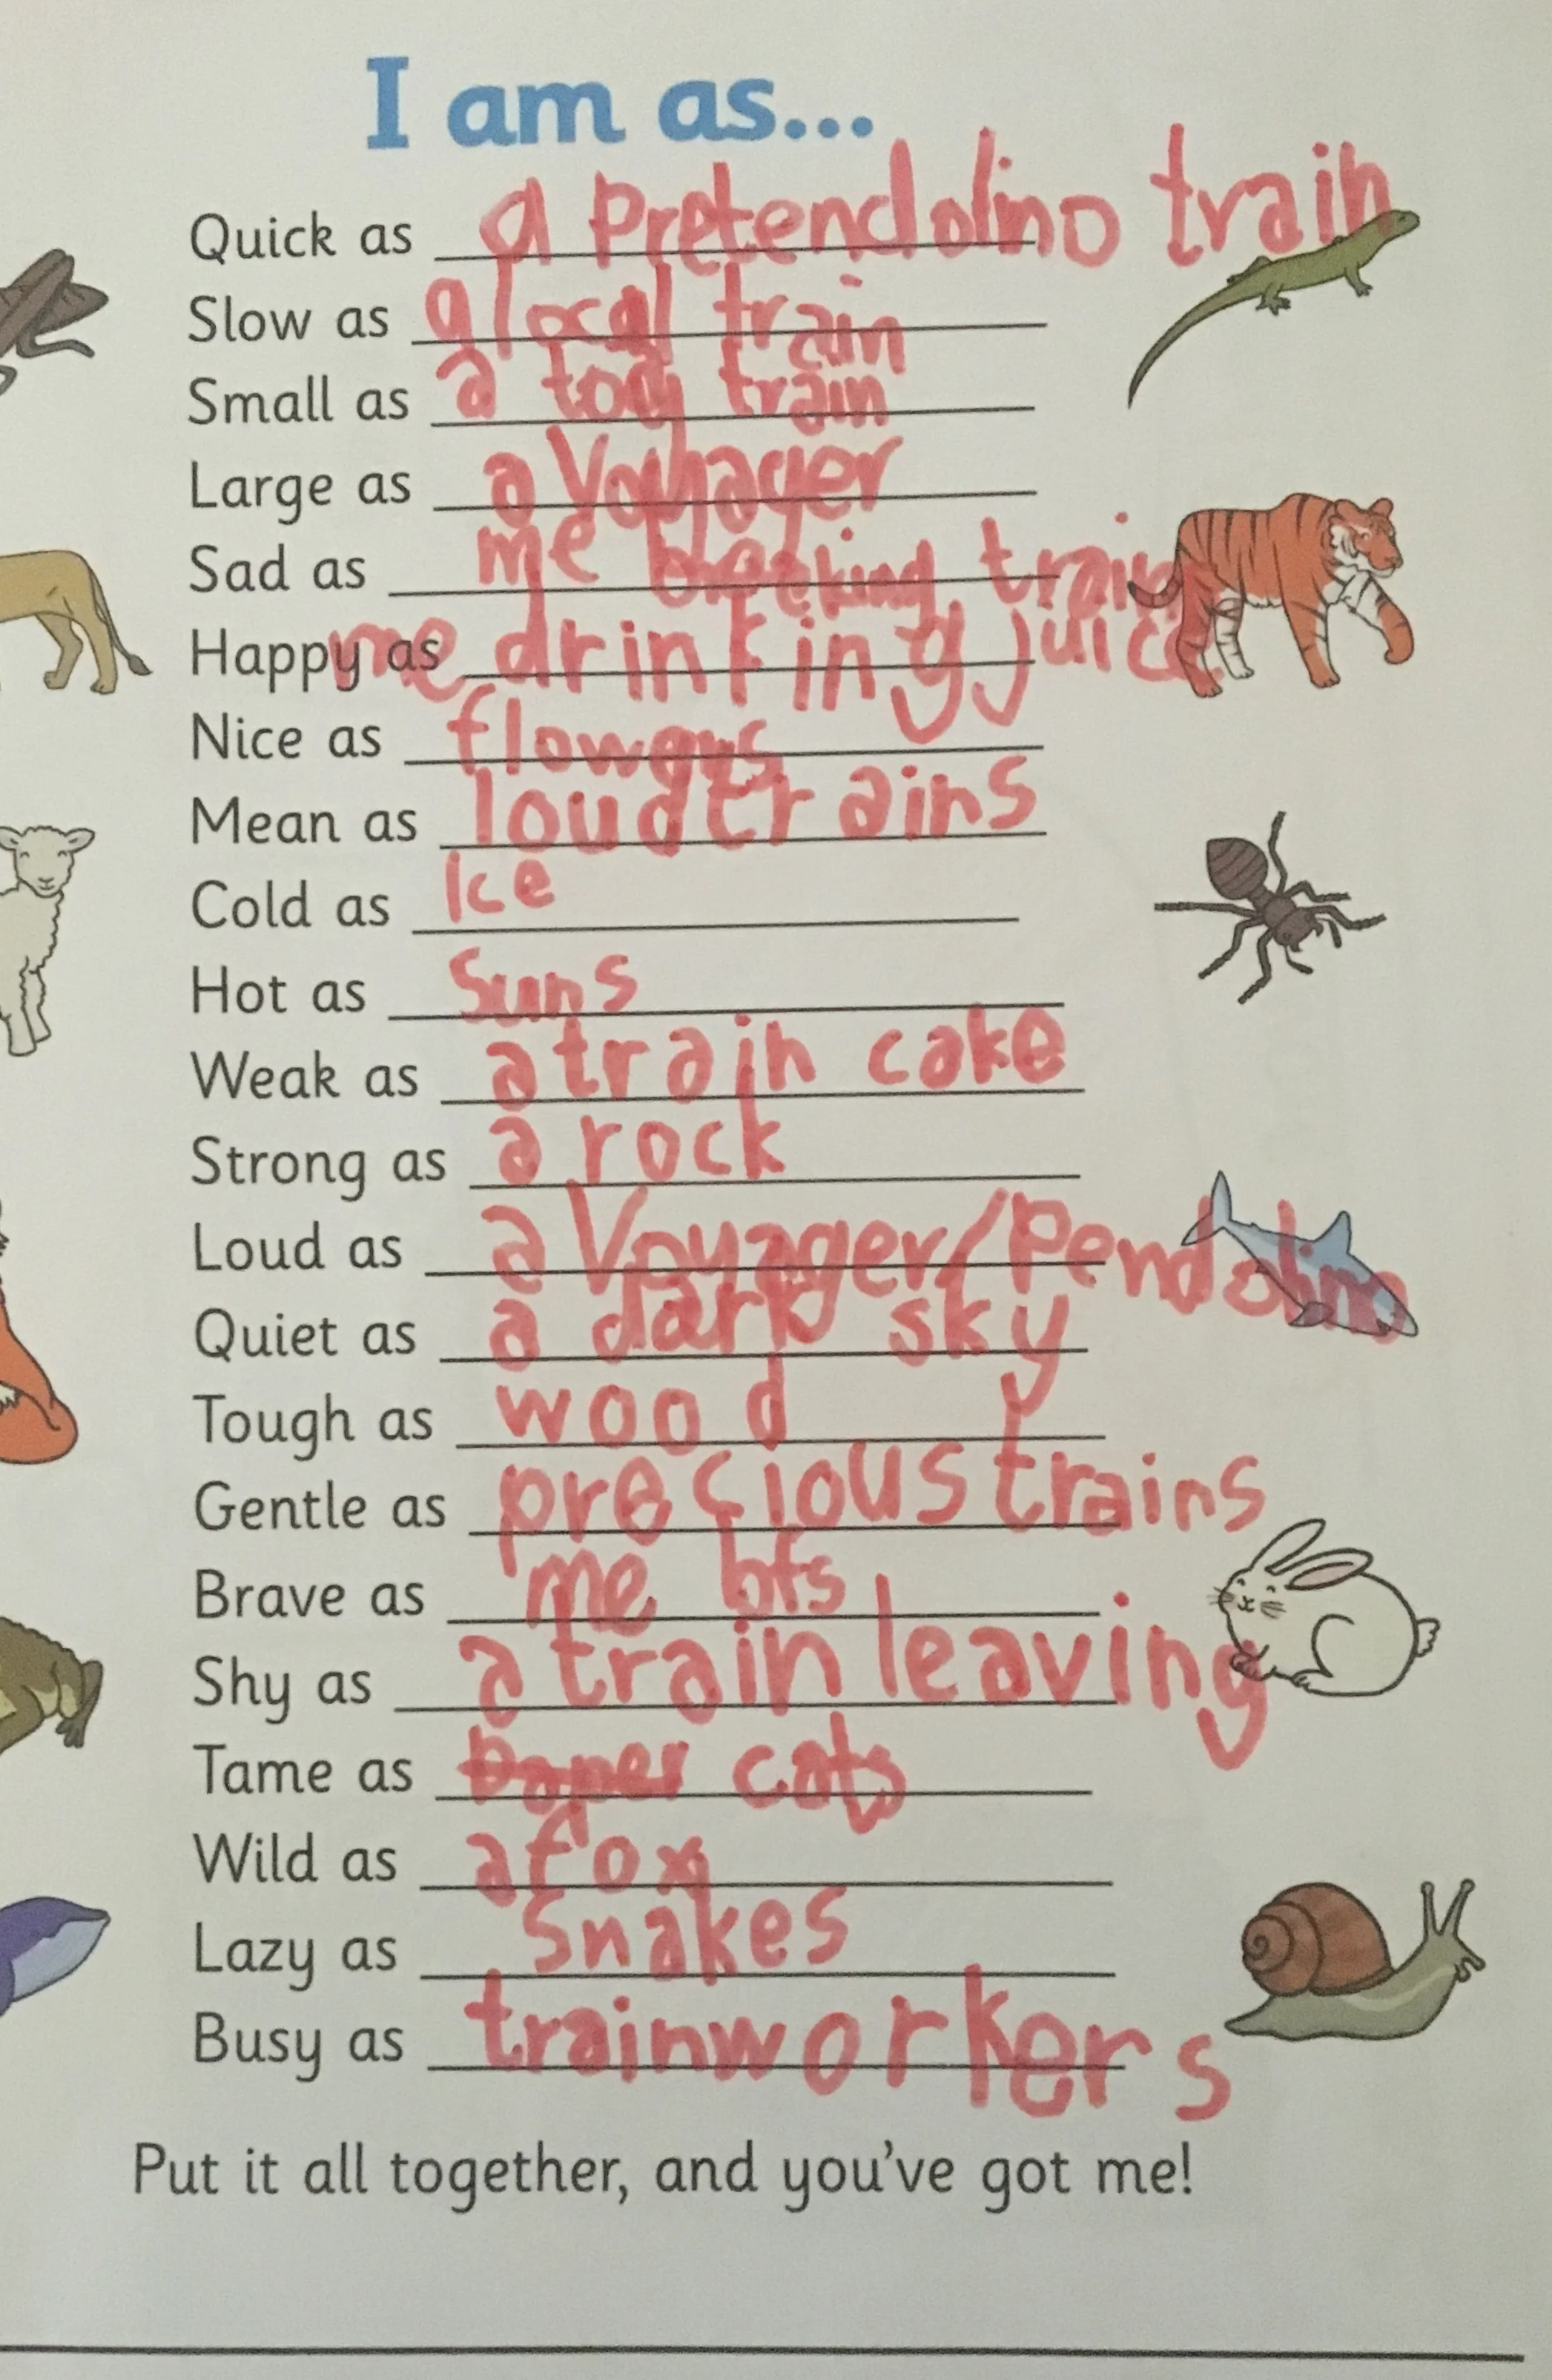 I am as...
Quick as a Pretendolino train
Slow as a local train
Small as a toy train
Large as a Voyhager
Sad as me breaking train
Happy as me drinking juice
Nice as flowers
Mean as loud trains
Cold as Ice
Hot as Suns
Weak as a train cake
Strong as a rock
Loud as a Voyager/Pendolino
Quiet as a dark sky
Tough as wood
Gentle as precious trains
Brave as me bfs
Shy as a train leaving
Tame as paper cats
Wild as a fox
Lazy as Snakes
Busy as trainworkers
Put it all together, and you've got me!